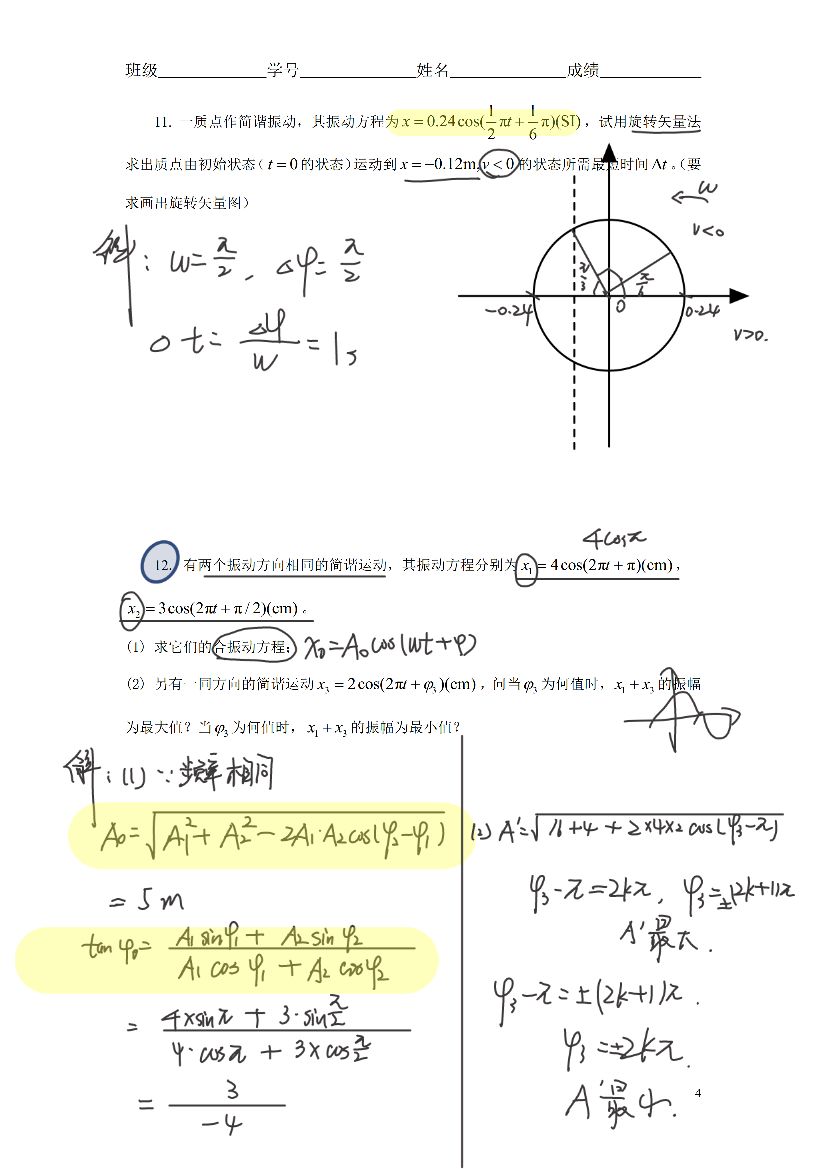 班级 学号 姓名 成绩
11. 一质点作简谐振动，其振动方程为 x = 0.24cos(1/2 πt + 1/6 π)(SI)，试用旋转矢量法
求出质点由初始状态（t = 0 的状态）运动到 x = −0.12m, v < 0 的状态所需最短时间 Δt。（要
求画出旋转矢量图）
解: ω = π/2, Δφ = π/2
t = Δφ/ω = 1s
ω
v<0
π/3
π/6
-0.24
0
0.24
v>0.
4cosπ
12. 有两个振动方向相同的简谐运动，其振动方程分别为 x₁ = 4cos(2πt + π)(cm)，
x₂ = 3cos(2πt + π/2)(cm)。
(1) 求它们的合振动方程； x₀ = A₀cos(ωt+φ)
(2) 另有一同方向的简谐运动 x₃ = 2cos(2πt + φ₃)(cm)，问当 φ₃ 为何值时，x₁ + x₃ 的振幅
为最大值？当 φ₃ 为何值时，x₁ + x₃ 的振幅为最小值？
解: (1) ∵频率相同
A₀ = √(A₁² + A₂² − 2A₁·A₂cos(φ₂−φ₁))
= 5 m
tanφ₀ = (A₁sinφ₁ + A₂sinφ₂)/(A₁cosφ₁ + A₂cosφ₂)
= (4×sinπ + 3·sinπ/2)/(4·cosπ + 3×cosπ/2)
= 3/−4
(2) A' = √(16+4+2×4×2cos(φ₃−π))
φ₃−π = 2kπ, φ₃ = ±(2k+1)π
A'最大.
φ₃−π = ±(2k+1)π.
φ₃ = ±2kπ.
A'最小.
4